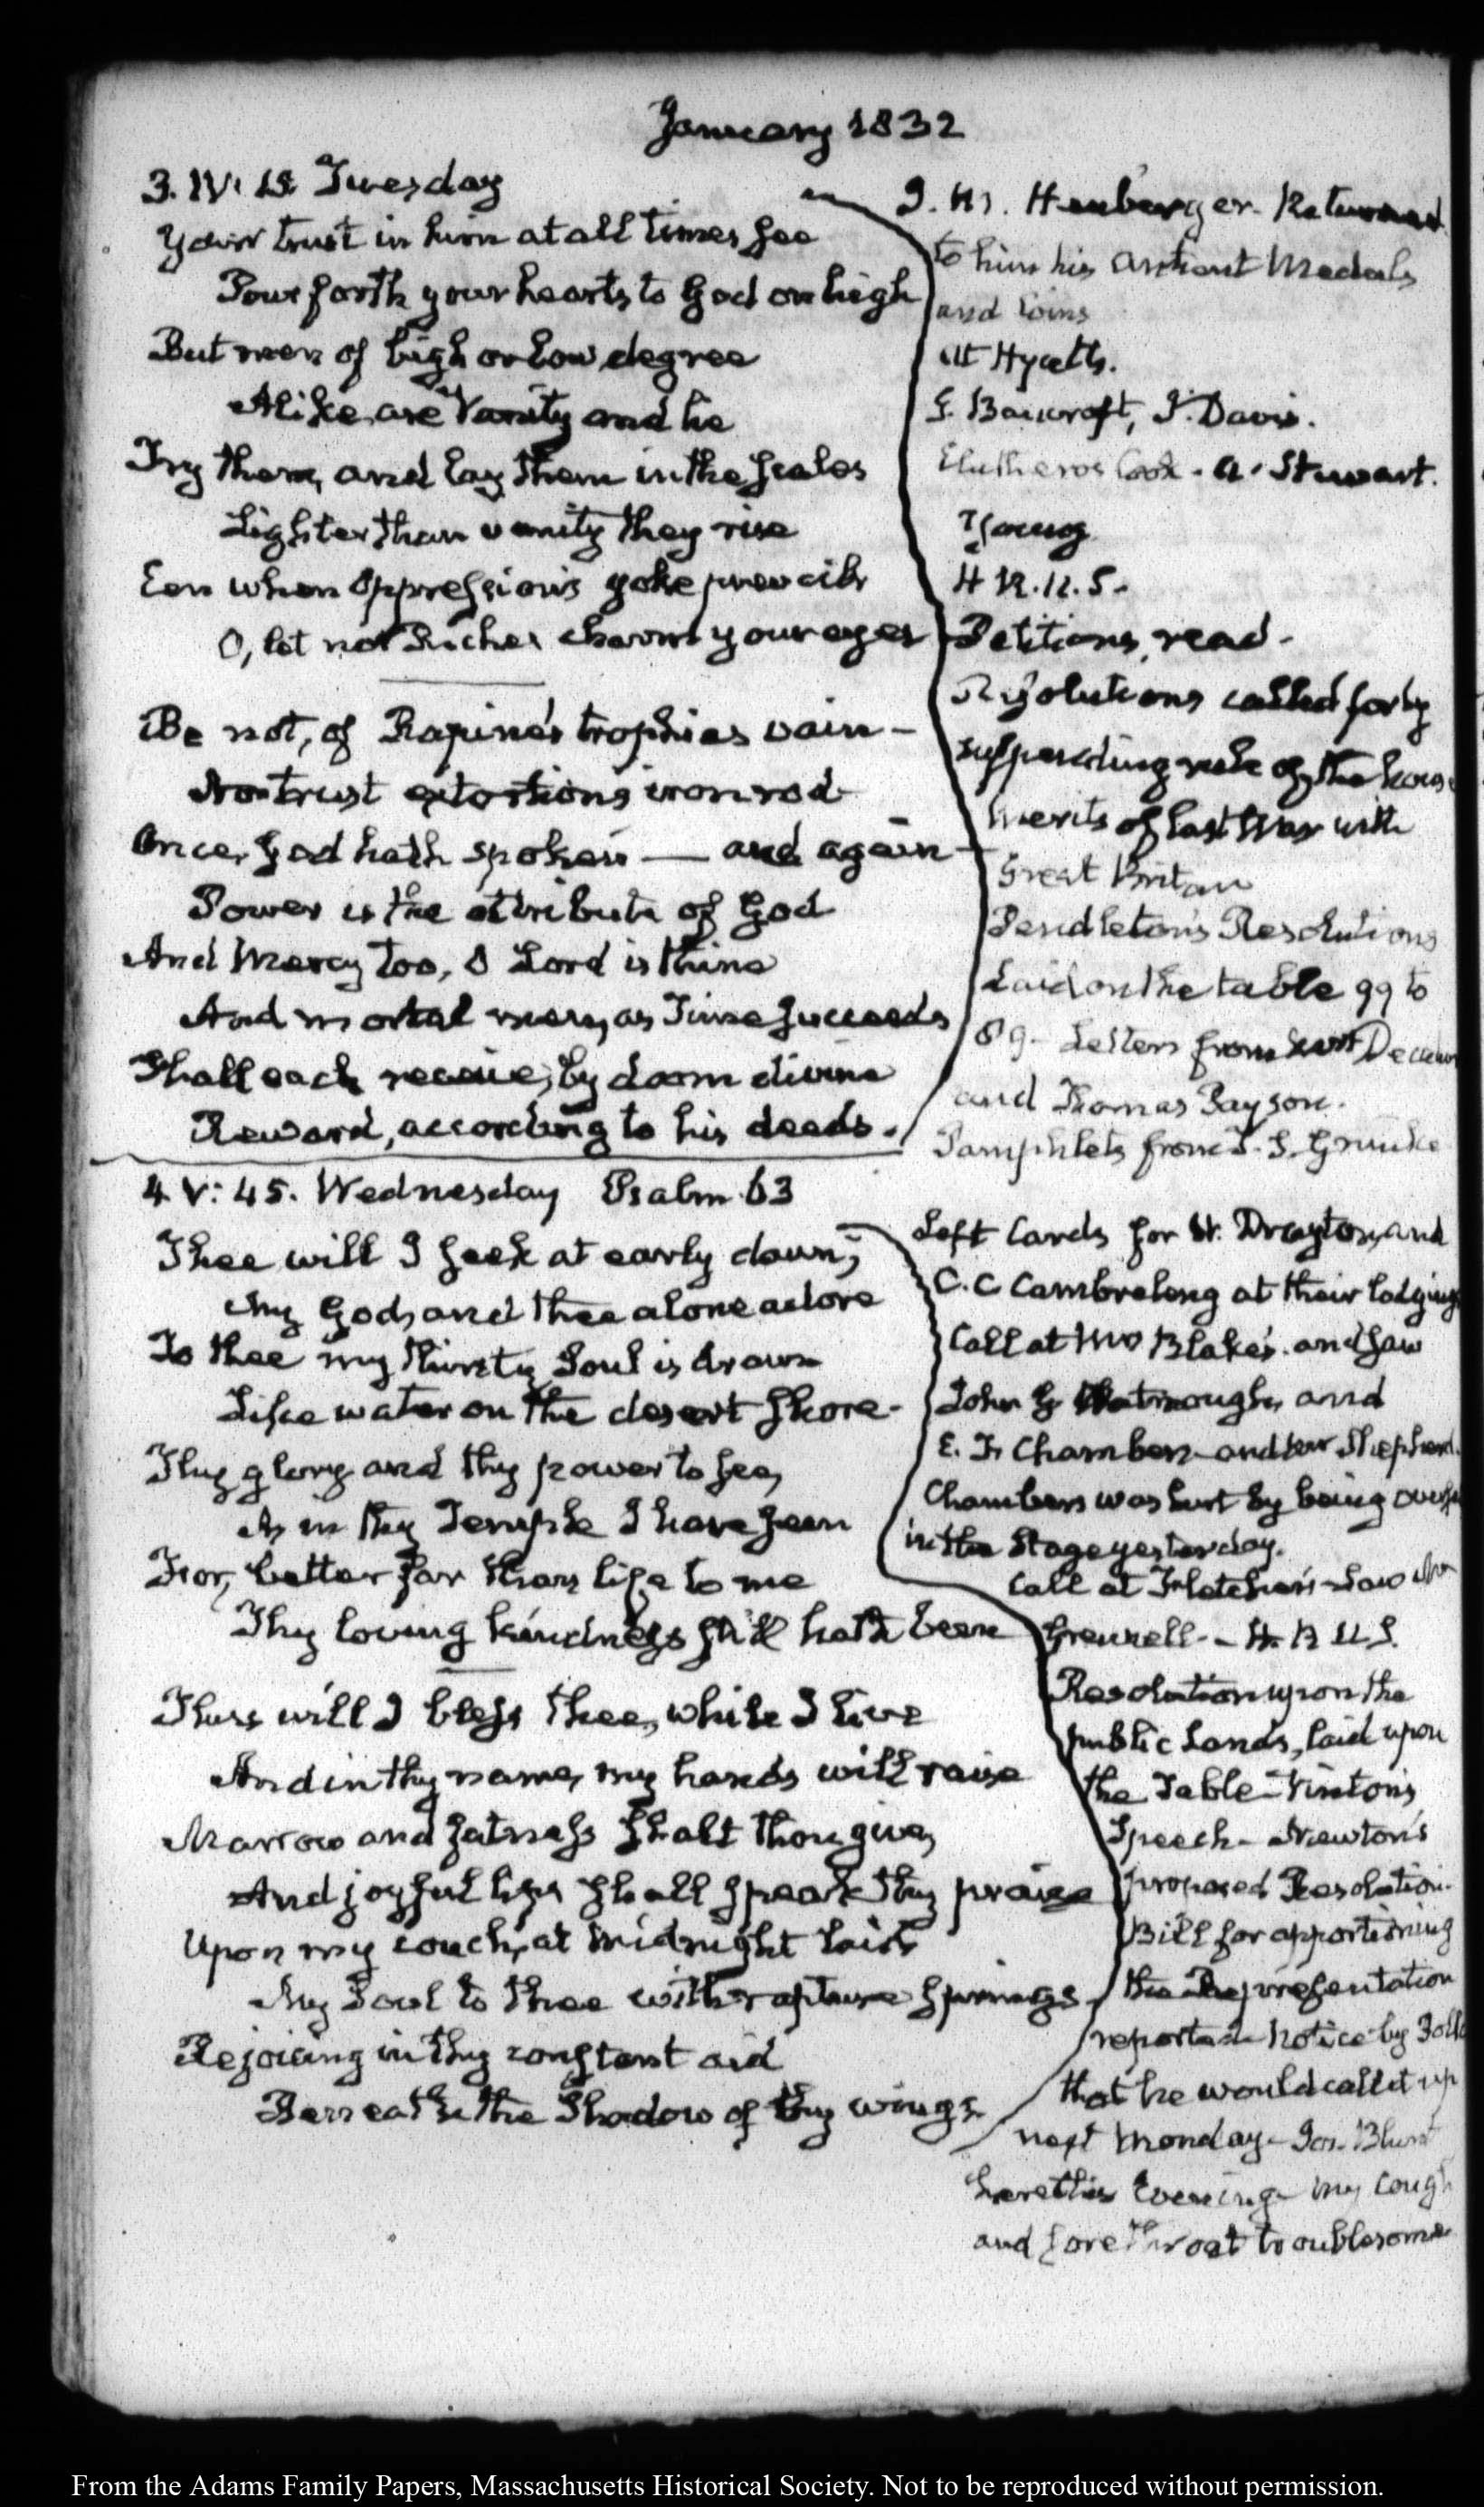 January 1832
3. IV: 15. Tuesday
Your trust in him at all times see
Pour forth your hearts to God on high
But men of high or low degree
Alike, are Vanity and lie
Try them, and lay them in the scales
Lighter than vanity they rise
Een when Oppression's yoke prevails
O, let not Riches charm your eyes
Be not, of Rapine's trophies vain—
Nor trust extortion's iron rod
Once, God hath spoken — and again—
Power is the attribute of God
And Mercy too, O Lord is thine
And mortal man, as Time succeeds
Shall each receive, by doom divine
Reward, according to his deeds.
to him his Antient Medals
and Coins
at Hyatt's.
G. Bancroft, J. Davis.
Elutheros Cook - A. Stewart.
Young
H. R. U. S.
Petitions, read.
Resolutions called for by
suspending rule of the hous
Merits of last War with
Great Britain
Pendleton's Resolutions
Laid on the table 99 to
89. Letters from
and Thomas Payson.
Pamphlets from T. S. Grimke
4. V: 45. Wednesday Psalm 63
Thee will I seek at early dawn;
My God, and thee alone adore
To thee my thirsty Soul is drawn
Like water on the desert shore.
Thy glory and thy power to see,
As in thy Temple I have seen
For, better far than life to me
Thy loving kindness still hath been
Thus will I bless thee, while I live
And in thy name, my hands will raise
Marrow and fatness shalt thou give,
And joyful lips shall speak thy praise
Upon my couch, at midnight laid
My Soul to thee with rapture springs
Rejoicing in thy constant aid
Beneath the Shadow of thy wings
Left Cards for W. Drayton, and
C. C Cambreleng at their lodging
Call at Mrs Blake's. and saw
John G Watmough, and
E. F. Chambers and
Chambers was hurt by being
in the Stage yesterday.
Call at Fletcher's - Saw Mr
Grennell - H. R U. S.
Resolution upon the
public Lands, laid upon
the Table - Vinton's
Speech - Newton's
proposed Resolution.
Bill for apportioning
the Representation
reported - Notice by Polk
that he would call it up
next Monday - Jos. Blunt
here this Evening - My Cough
and sore throat troublesome